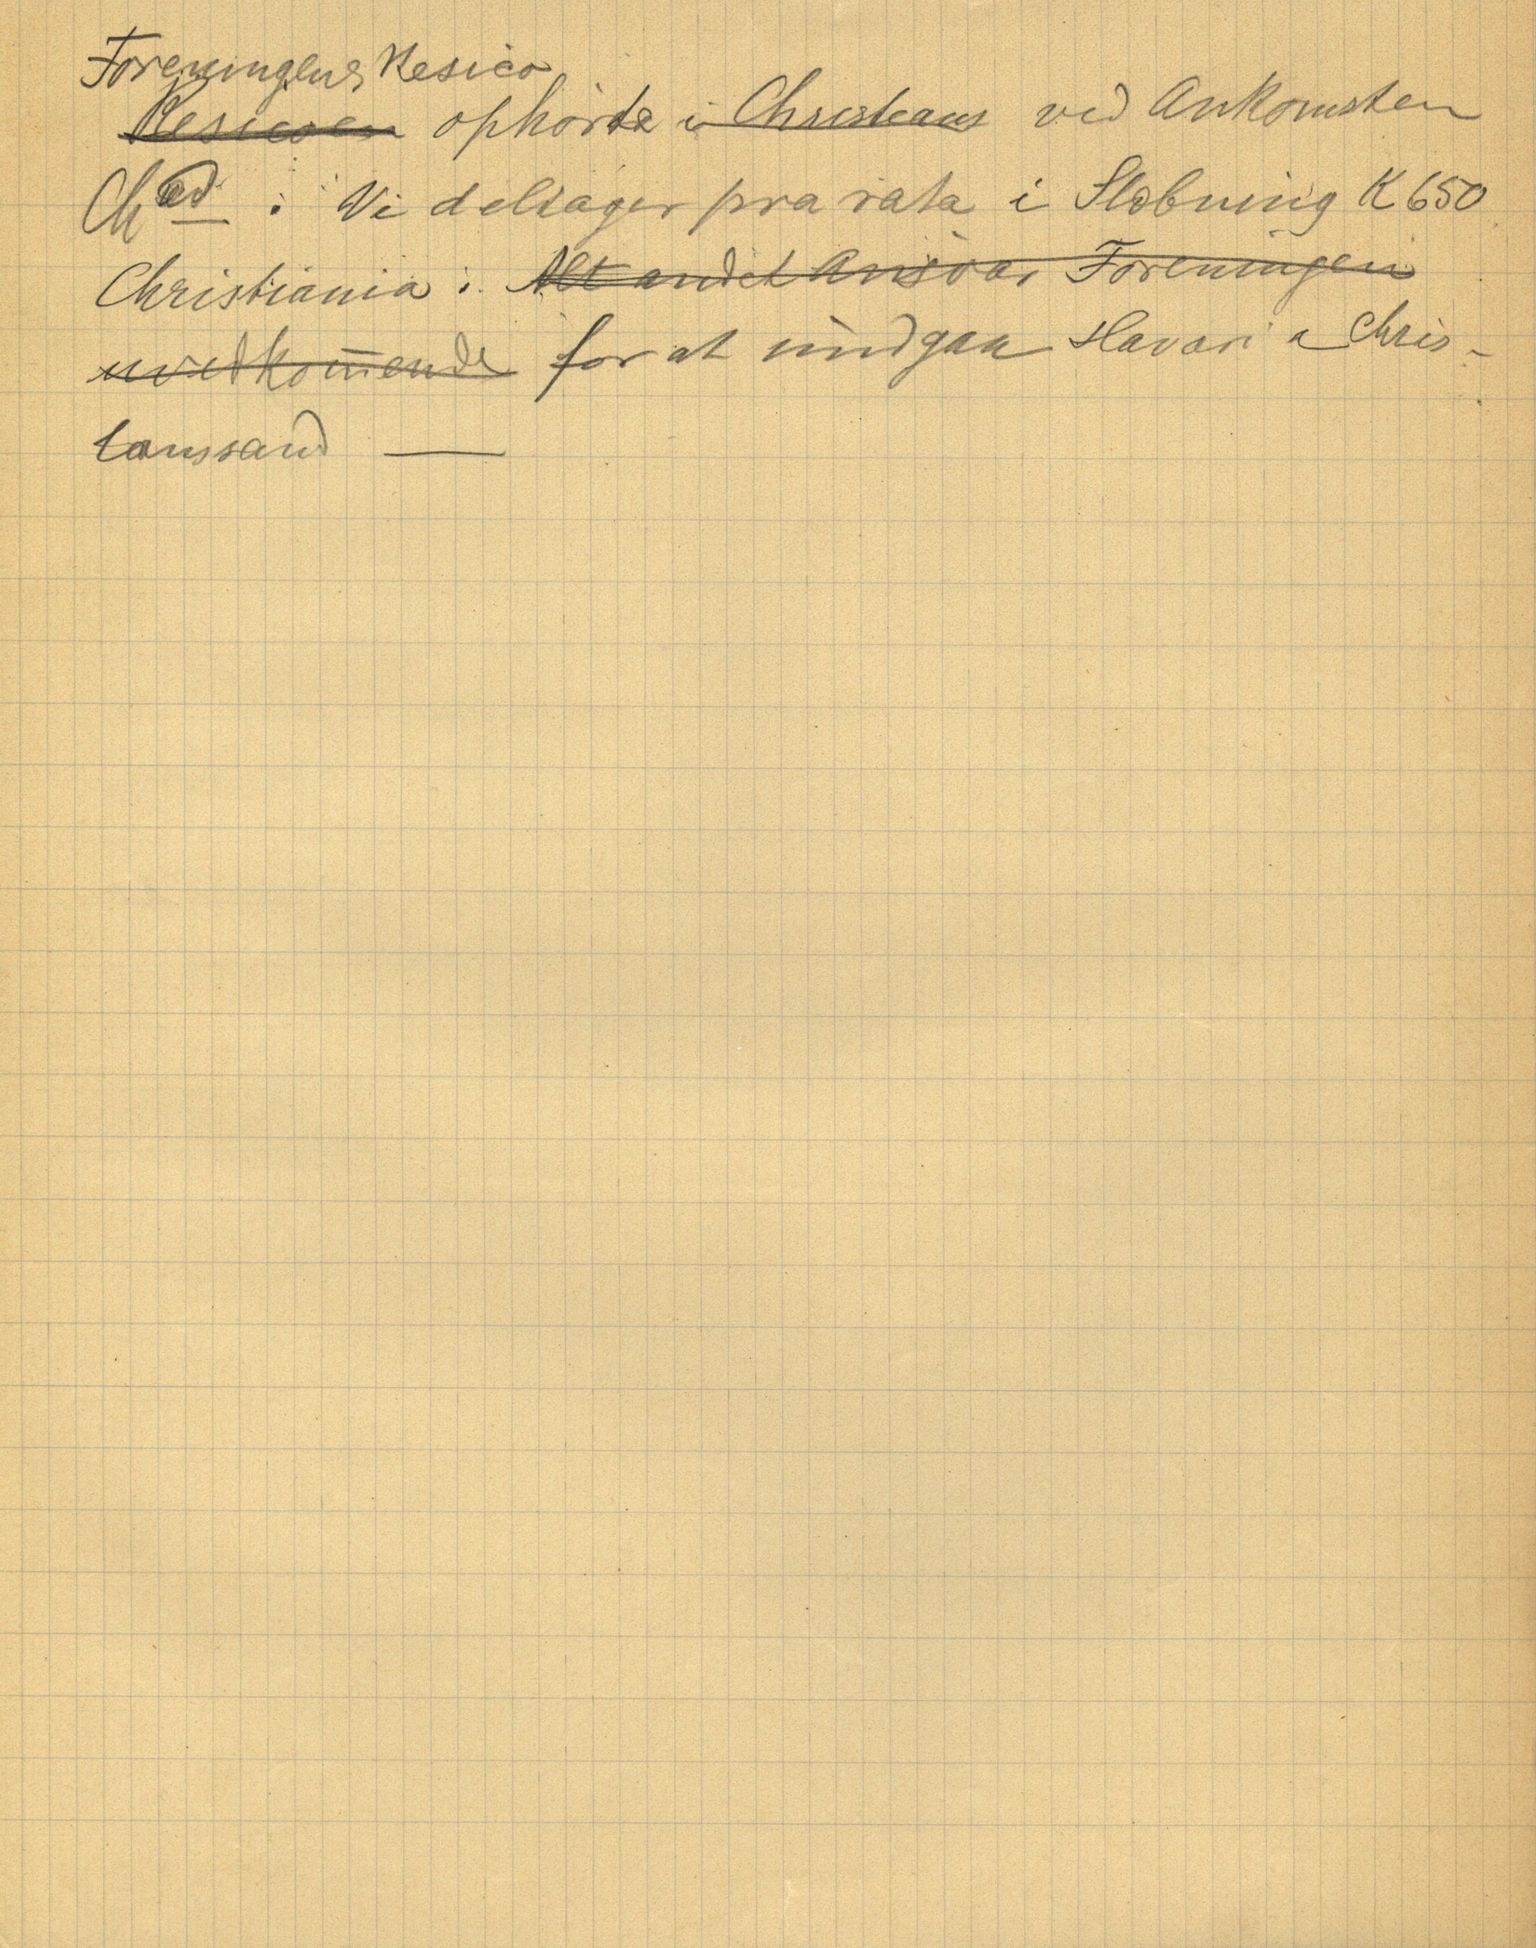 Foreningens Resico
Resicoen ophörte i Christians ved Ankomsten
Ch ad : Vi deltager pro rata i Slæbning K 650
Christiania : Alt andet Ansvar Foreningen
uvedkommende for at undgaa Havari a Chris-
tianssand —